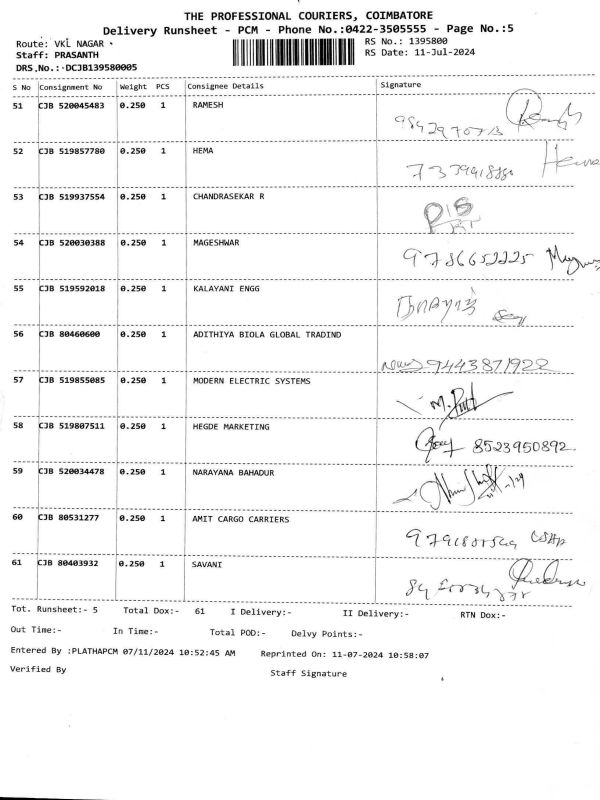 THE PROFESSIONAL COURIERS, COIMBATORE
Delivery Runsheet - PCM - Phone No.:0422-3505555 - Page No.:5
Route: VKL NAGAR RS No.: 1395800
Staff: PRASANTH RS Date: 11-Jul-2024
DRS.No.: DCJB139580005
S No Consignment No Weight PCS Consignee Details Signature
51 CJB 520045483 0.250 1 RAMESH
52 CJB 519857780 0.250 1 HEMA Hema
53 CJB 519937554 0.250 1 CHANDRASEKAR R
54 CJB 520030388 0.250 1 MAGESHWAR 9786652225
55 CJB 519592018 0.250 1 KALAYANI ENGG
56 CJB 80460600 0.250 1 ADITHIYA BIOLA GLOBAL TRADIND 9443871922
57 CJB 519855085 0.250 1 MODERN ELECTRIC SYSTEMS
58 CJB 519807511 0.250 1 HEGDE MARKETING 8523950892
59 CJB 520034478 0.250 1 NARAYANA BAHADUR
60 CJB 80531277 0.250 1 AMIT CARGO CARRIERS
61 CJB 80403932 0.250 1 SAVANI
Tot. Runsheet:- 5 Total Dox:- 61 I Delivery:- II Delivery:- RTN Dox:-
Out Time:- In Time:- Total POD:- Delvy Points:-
Entered By :PLATHAPCM 07/11/2024 10:52:45 AM Reprinted On: 11-07-2024 10:58:07
Verified By Staff Signature